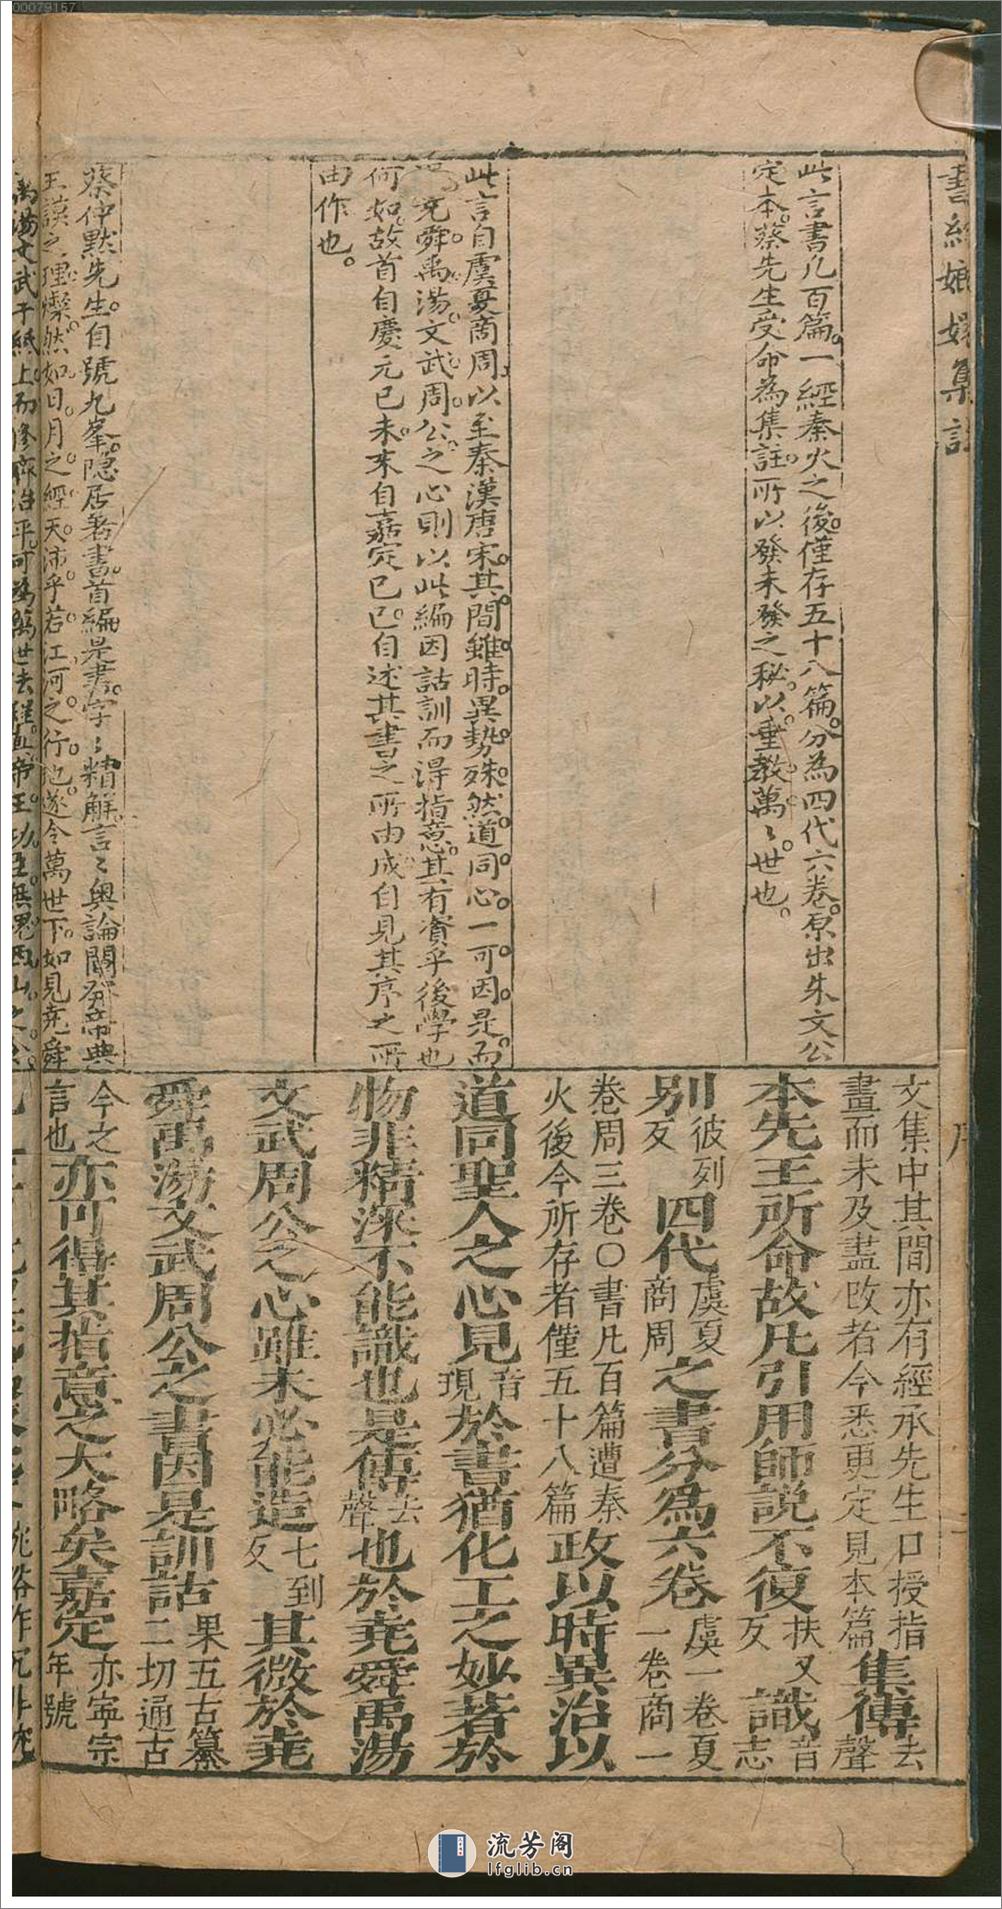 00079157
書經嫏嬛集註
序
此言書凡百篇。一經秦火之後。僅存五十八篇。分為四代六卷。原出朱文公
定本。蔡先生受命為集註。所以發未發之秘。以重教萬〻世也。
此言自虞夏商周。以至秦漢唐宋。其間雖時異勢殊。然道同心一。可因是而
堯舜禹湯文武周公之心則以此編因詁訓而得指意。其有資乎後學也
何如。故首自慶元已未。末自嘉定已巳。自述其書之所由成自見其序之所
由作也。
蔡仲默先生。自號九峯。隐居著書。首編是書。字〻精解。言〻奧論闡發帝典
王謨之理。燦然如日月之經天。沛乎若江河之行地。遂令萬世下。如見堯舜
禹湯文武于紙上。而修齊治平。可為萬世法程。
文集中其間亦有經承先生口授指
畫而未及盡改者今悉更定見本篇
集傳去聲
本先王所命故凡引用師說不復扶又反識音志
別彼列反四代虞夏商周之書分為六卷虞一卷夏一卷商一
卷周三卷〇書凡百篇遭秦
火後今所存者僅五十八篇
政以時異治以
道同聖人之心見音現於書猶化工之妙著於
物非精深不能識也是傳去聲也於堯舜禹湯
文武周公之心雖未必能造七到反其微於堯
舜禹湯文武周公之書因是訓詁果五古纂二切通古
今之言也亦可得其指意之大略矣嘉定亦寧宗年號
流芳阁
lfglib.cn